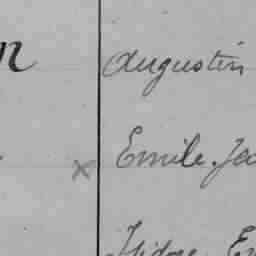 n Augustin
x Emile Jea
Isidore E